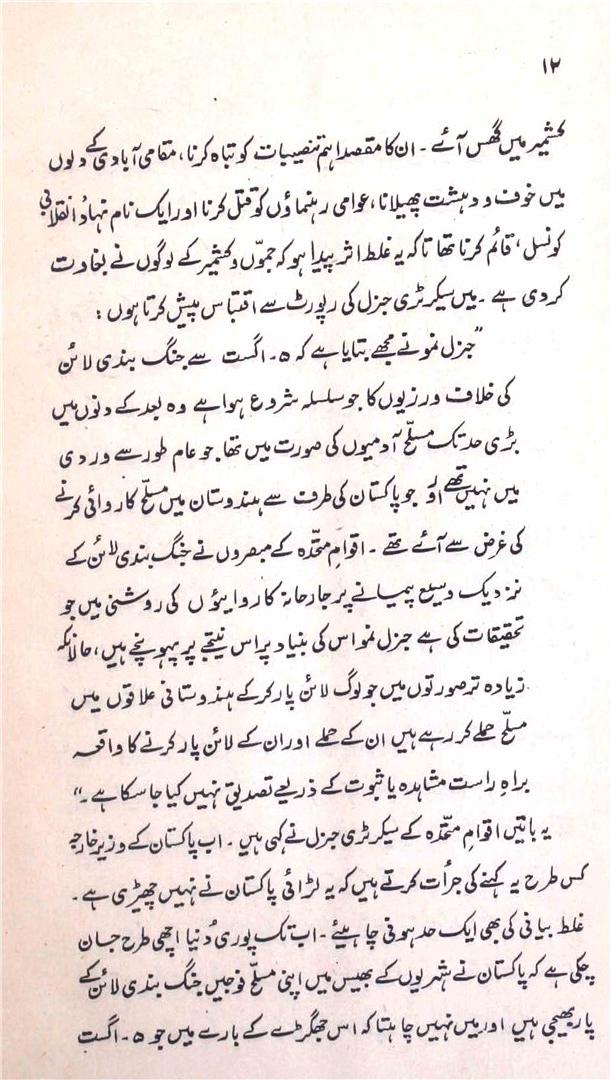 ۱۲
کشمیر میں گھس آئے ۔ ان کا مقصد اہم تنصیبات کو تباہ کرنا، مقامی آبادی کے دلوں
میں خوف و دہشت پھیلانا، عوامی رہنماؤں کو قتل کرنا اور ایک نام نہاد 'انقلابی
کونسل' قائم کرنا تھا تاکہ یہ غلط اثر پیدا ہو کہ جموّں و کشمیر کے لوگوں نے بغاوت
کر دی ہے ۔ میں سیکرٹری جنرل کی رپورٹ سے اقتباس پیش کرتا ہوں :
"جنرل نمو نے مجھے بتایا ہے کہ ۵۔ اگست سے جنگ بندی لائن
کی خلاف ورزیوں کا جو سلسلہ شروع ہوا ہے وہ بعد کے دنوں میں
بڑی حد تک مسلّح آدمیوں کی صورت میں تھا۔ جو عام طور سے وردی
میں نہیں تھے اور جو پاکستان کی طرف سے ہندوستان میں مسلّح کاروائی کرنے
کی غرض سے آئے تھے ۔ اقوامِ متحّدہ کے مبصروں نے جنگ بندی لائن کے
نزدیک وسیع پیمانے پر جارحانہ کاروائیوں کی روشنی میں جو
تحقیقات کی ہے جنرل نمو اس کی بنیاد پر اس نتیجے پر پہونچے ہیں، حالانکہ
زیادہ تر صورتوں میں جو لوگ لائن پار کر کے ہندوستانی علاقوں میں
مسلّح حملے کر رہے ہیں ان کے حملے اور ان کے لائن پار کرنے کا واقعہ
براہِ راست مشاہدہ یا ثبوت کے ذریعے تصدیق نہیں کیا جا سکا ہے ۔"
یہ باتیں اقوامِ متحّدہ کے سیکرٹری جنرل نے کہی ہیں ۔ اب پاکستان کے وزیر خارجہ
کس طرح یہ کہنے کی جرأت کرتے ہیں کہ یہ لڑائی پاکستان نے نہیں چھیڑی ہے ۔
غلط بیانی کی بھی ایک حد ہونی چاہیئے ۔ اب تک پوری دُنیا اچھی طرح جان
چکی ہے کہ پاکستان نے شہریوں کے بھیس میں اپنی مسلّح فوجیں جنگ بندی لائن کے
پار بھیجی ہیں اور میں نہیں چاہتا کہ اس جھگڑے کے بارے میں جو ۵۔ اگست